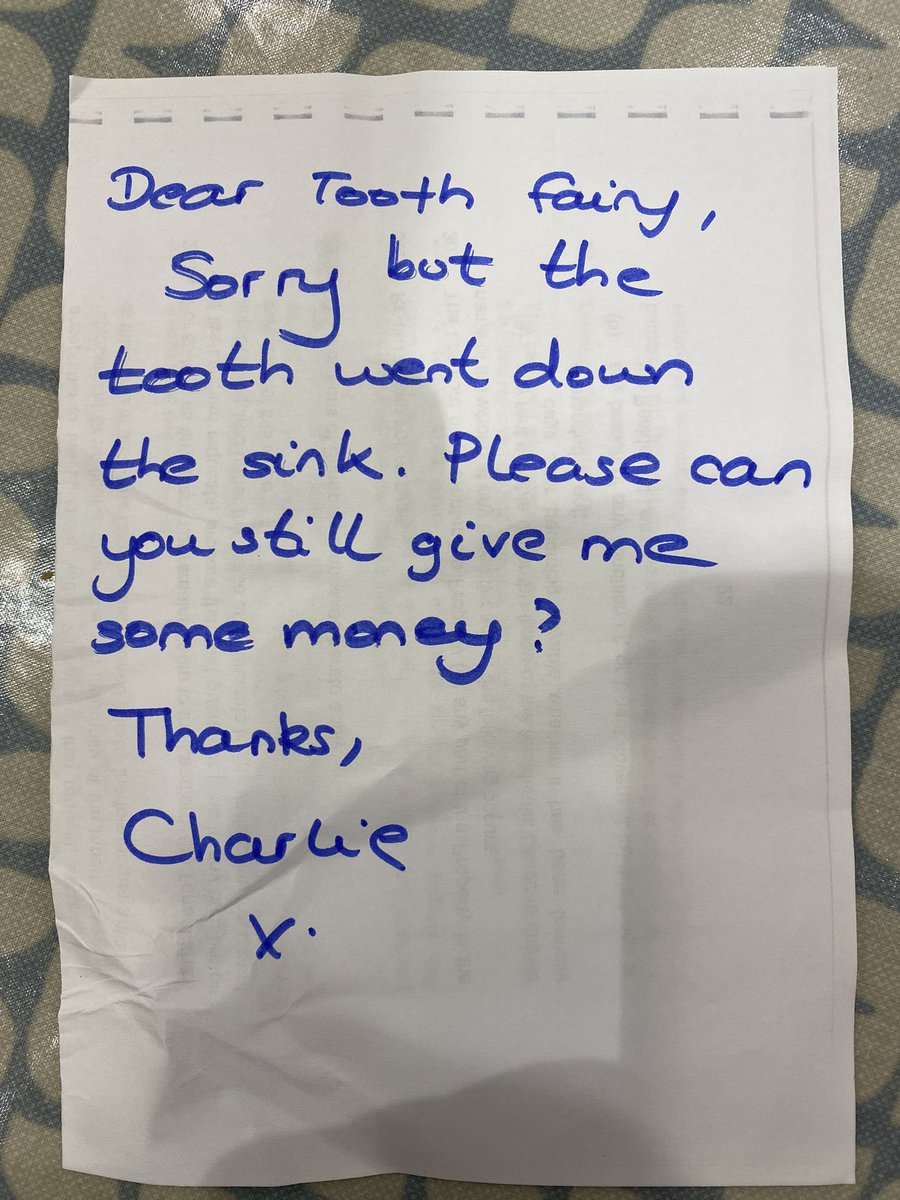 Dear Tooth fairy,
Sorry but the
tooth went down
the sink. Please can
you still give me
some money?
Thanks,
Charlie
x.